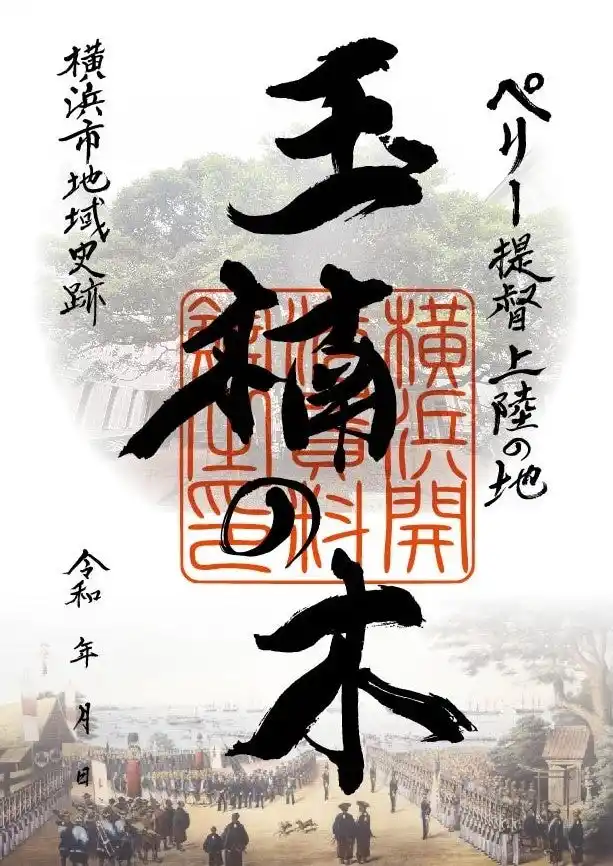 ペリー提督上陸の地
玉楠の木
横浜市地域史跡
令和 年 月 日
横浜開
港資料
館之印